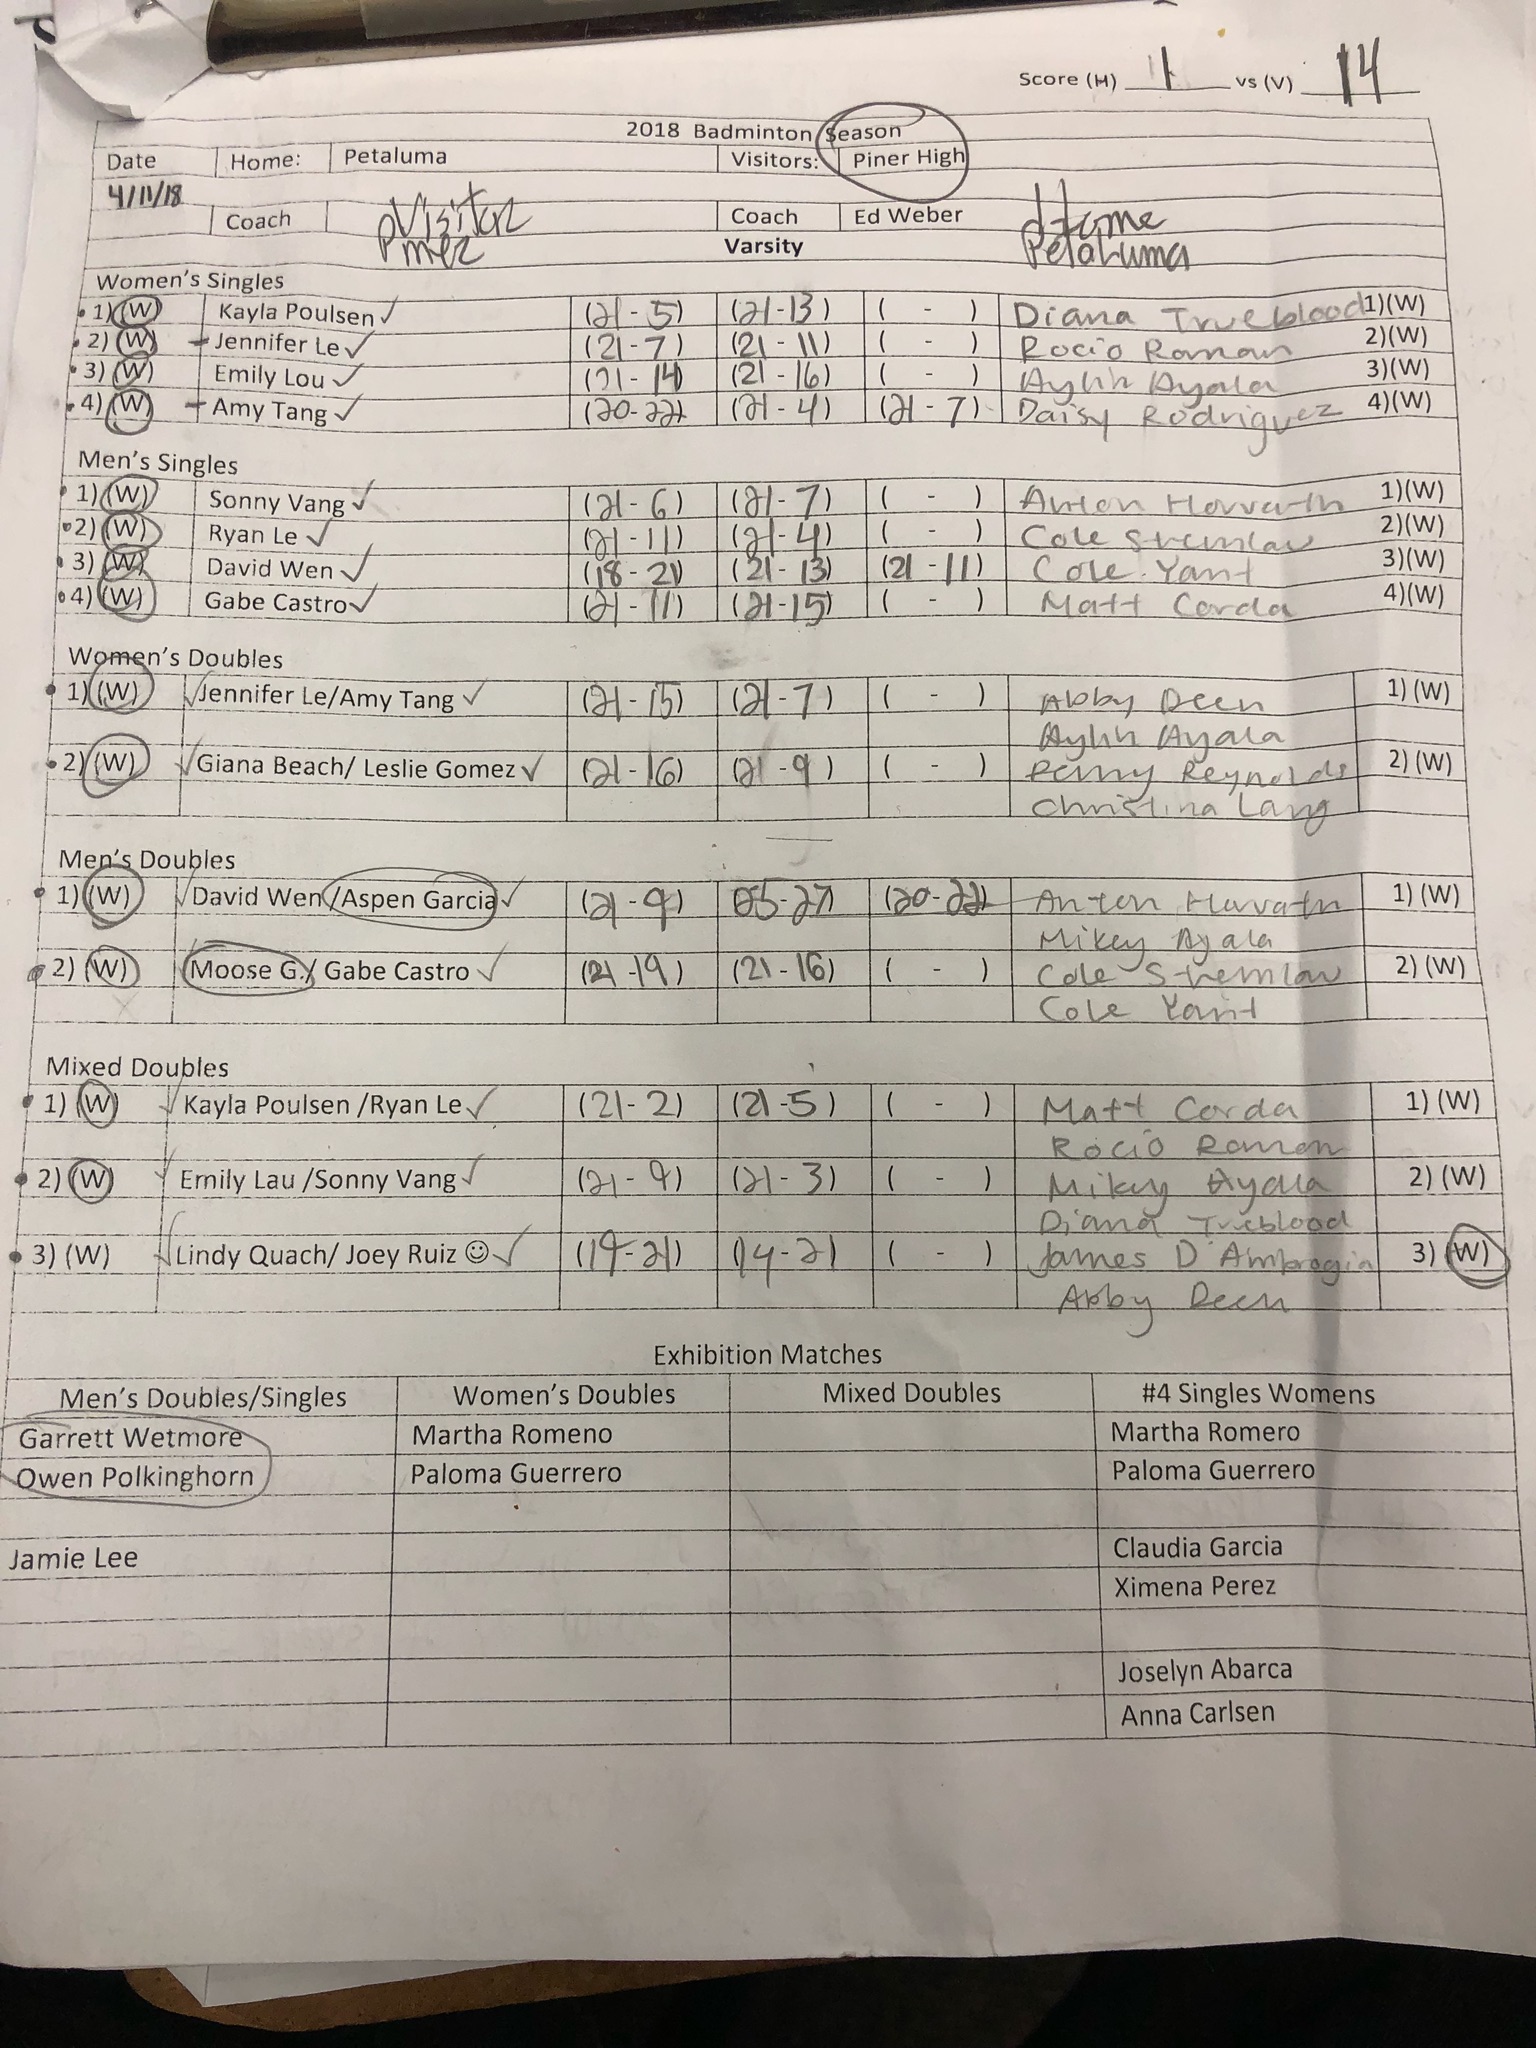 Score (H) 1 vs (V) 14
2018 Badminton Season
Date Home: Petaluma Visitors: Piner High
4/11/18
Coach Visitor Coach Ed Weber Home
Piner Varsity Petaluma
Women's Singles
1) (W) Kayla Poulsen ✓ (21-5) (21-13) ( - ) Diana Trueblood 1)(W)
2) (W) Jennifer Le ✓ (21-7) (21-11) ( - ) Rocio Roman 2)(W)
3) (W) Emily Lou ✓ (21-14) (21-16) ( - ) Aylin Ayala 3)(W)
4) (W) Amy Tang ✓ (20-22) (21-4) (21-7) Daisy Rodriguez 4)(W)
Men's Singles
1) (W) Sonny Vang ✓ (21-6) (21-7) ( - ) Anton Horvath 1)(W)
2) (W) Ryan Le ✓ (21-11) (21-4) ( - ) Cole 2)(W)
3) (W) David Wen ✓ (18-21) (21-13) (21-11) Cole Yant 3)(W)
4) (W) Gabe Castro ✓ (21-11) (21-15) ( - ) Matt Corda 4)(W)
Women's Doubles
1) (W) ✓ Jennifer Le/Amy Tang ✓ (21-15) (21-7) ( - ) Abby Deen 1) (W)
Aylin Ayala
2) (W) ✓ Giana Beach/ Leslie Gomez ✓ (21-16) (21-9) ( - ) Penny Reynolds 2) (W)
Christina Lang
Men's Doubles
1) (W) ✓ David Wen /Aspen Garcia ✓ (21-9) 25-27) (20-22) Anton Horvath 1) (W)
Mikey Ayala
2) (W) Moose G./ Gabe Castro ✓ (21-19) (21-16) ( - ) Cole 2) (W)
Cole Yant
Mixed Doubles
1) (W) ✓ Kayla Poulsen /Ryan Le ✓ (21-2) (21-5) ( - ) Matt Corda 1) (W)
Rocio Roman
2) (W) ✓ Emily Lau /Sonny Vang ✓ (21-9) (21-3) ( - ) Mikey Ayala 2) (W)
Diana Trueblood
3) (W) ✓ Lindy Quach/ Joey Ruiz ☺ ✓ (19-21) (14-21) ( - ) James D'Ambrogia 3) (W)
Abby Deen
Exhibition Matches
Men's Doubles/Singles Women's Doubles Mixed Doubles #4 Singles Womens
Garrett Wetmore Martha Romeno Martha Romero
Owen Polkinghorn Paloma Guerrero Paloma Guerrero
Jamie Lee Claudia Garcia
Ximena Perez
Joselyn Abarca
Anna Carlsen